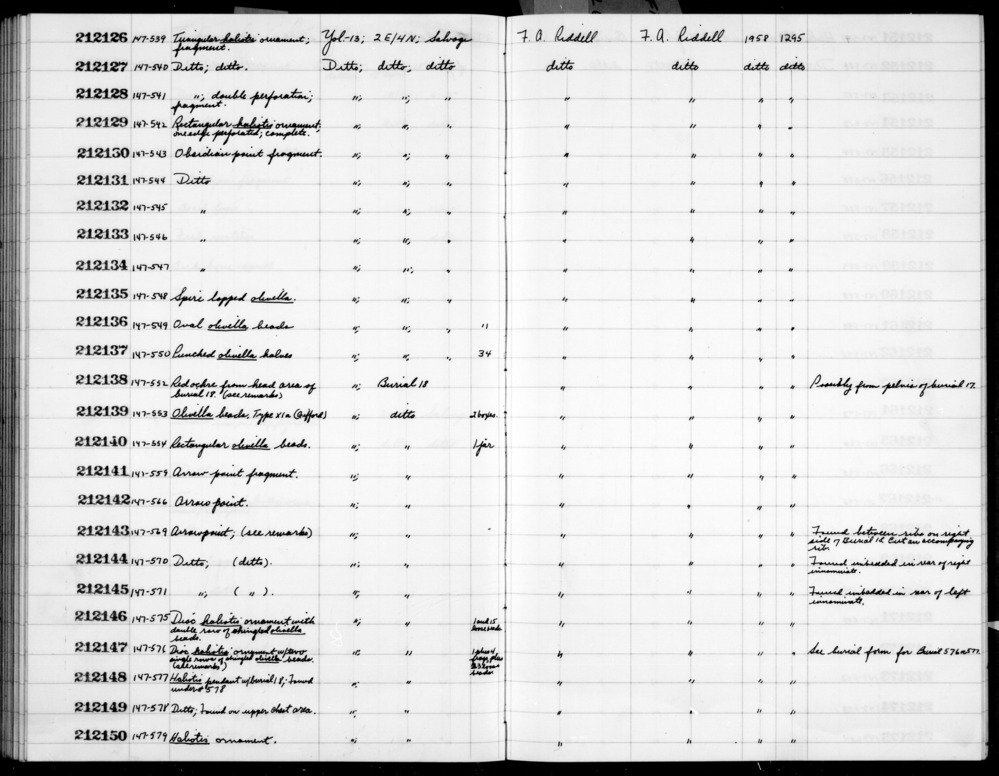 212126 147-539 Triangular haliotis ornament; Yol-13; 2E/4N; Salvage F. A. Riddell F. A. Riddell 1958 1295
fragment.
212127 147-540 Ditto; ditto. Ditto; ditto; ditto ditto ditto ditto ditto
212128 147-541 "; double perforation; "; "; " " " " "
fragment.
212129 147-542 Rectangular haliotis ornament; "; "; " " " " "
one edge perforated; complete.
212130 147-543 Obsidian point fragment. "; "; " " " " "
212131 147-544 Ditto "; "; " " " " "
212132 147-545 " "; "; " " " " "
212133 147-546 " "; "; " " " " "
212134 147-547 " "; "; " " " " "
212135 147-548 Spire lopped olivella. "; "; " " " " "
212136 147-549 Oval olivella beads "; "; " 11 " " " "
212137 147-550 Punched olivella halves "; "; " 34 " " " "
212138 147-552 Red ochre from head area of "; Burial 18 " " " " Possibly from pelvis of burial 17.
burial 18. (see remarks)
212139 147-553 Olivella beads, Type X1a (Gifford) "; ditto 2 boxes. " " " "
212140 147-554 Rectangular olivella beads. "; " 1 jar " " " "
212141 147-559 Arrow point fragment. "; " " " " "
212142 147-566 Arrow point. "; " " " " "
212143 147-569 Arrowpoint; (see remarks) "; " " " " " Found between ribs on right
side of Burial 18. Cut an accompanying
rib.
212144 147-570 Ditto; (ditto). "; " " " " " Found imbedded in rear of right
innominate.
212145 147-571 "; ( " ). "; " " " " " Found imbedded in rear of left
innominate.
212146 147-575 Disc haliotis ornament with "; " 1 and 15 " " " "
double row of shingled olivella loose beads
beads.
212147 147-576 Disc haliotis ornament w/two "; " 1 plus 4 " " " " See burial form for Burial 576 & 577.
single rows of shingled olivella beads. frags, plus
(see remarks) 23 loose
beads
212148 147-577 Haliotis pendant w/burial 18; Found "; " " " " "
under # 578
212149 147-578 Ditto; Found on upper chest area. "; " " " " "
212150 147-579 Haliotis ornament. "; " " " " "